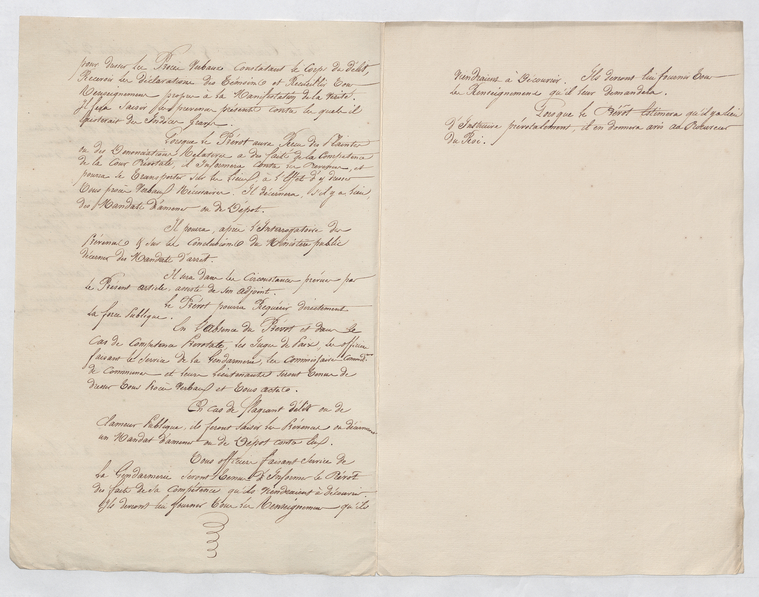 pour dresser les Procès Verbaux Constatant le Corps de délit,
Recevoir les déclarations des Témoins et Recueillir Tous
Renseignemens propres à la Manifestation de la Vérité.
Il fera Saisir les prévenus présents contre lesquels il
existerait des Indices graves.
Lorsque le Prévot aura Reçu des Plaintes
ou des Dénonciations Relatives a des faits de la Compétence
de la Cour Prévotale, il Informera Contre les Prévenus, et
pourra se Transporter sur les Lieux, à l'effet d'y dresser
Tous procès Verbaux Nécessaires. Il décernera, s'il y a lieu,
des Mandats d'amener ou de Dépot.
Il pourra, après l'Interrogatoire du
Prévenu & sur les Conclusions du Ministère public
décerner des Mandats d'arrêt.
Il sera dans les Circonstances prévues par
le Présent article, assisté de son adjoint.
Le Prévot pourra Requérir directement
La force Publique.
En l'absence du Prévot et dans le
Cas de Compétence Prévotale, les Juges de Paix, les officiers
faisant le Service de la Gendarmerie, les Commissaires
de Commune et leurs Lieutenants seront Tenus de
dresser Tous Procès Verbaux et Tous actes.
En cas de flagrant délit ou de
Clameur Publique, ils feront saisir les Prévenus ou décerneront
un Mandat d'amener ou de Dépot contre Eux.
Tous officiers faisant Service de
La Gendarmerie seront Tenus d'Informer le Prévot
des faits de sa Compétence qu'ils Viendraient à découvrir.
Ils devront lui fournir Tous les Renseignemens qu'ils
Viendraient à Découvrir. Ils devront lui fournir Tous
les Renseignemens qu'il leur demandera.
Lorsque le Prévot Estimera qu'il y a lieu
d'Instruire prévotalement, il en donnera avis au Procureur
du Roi.